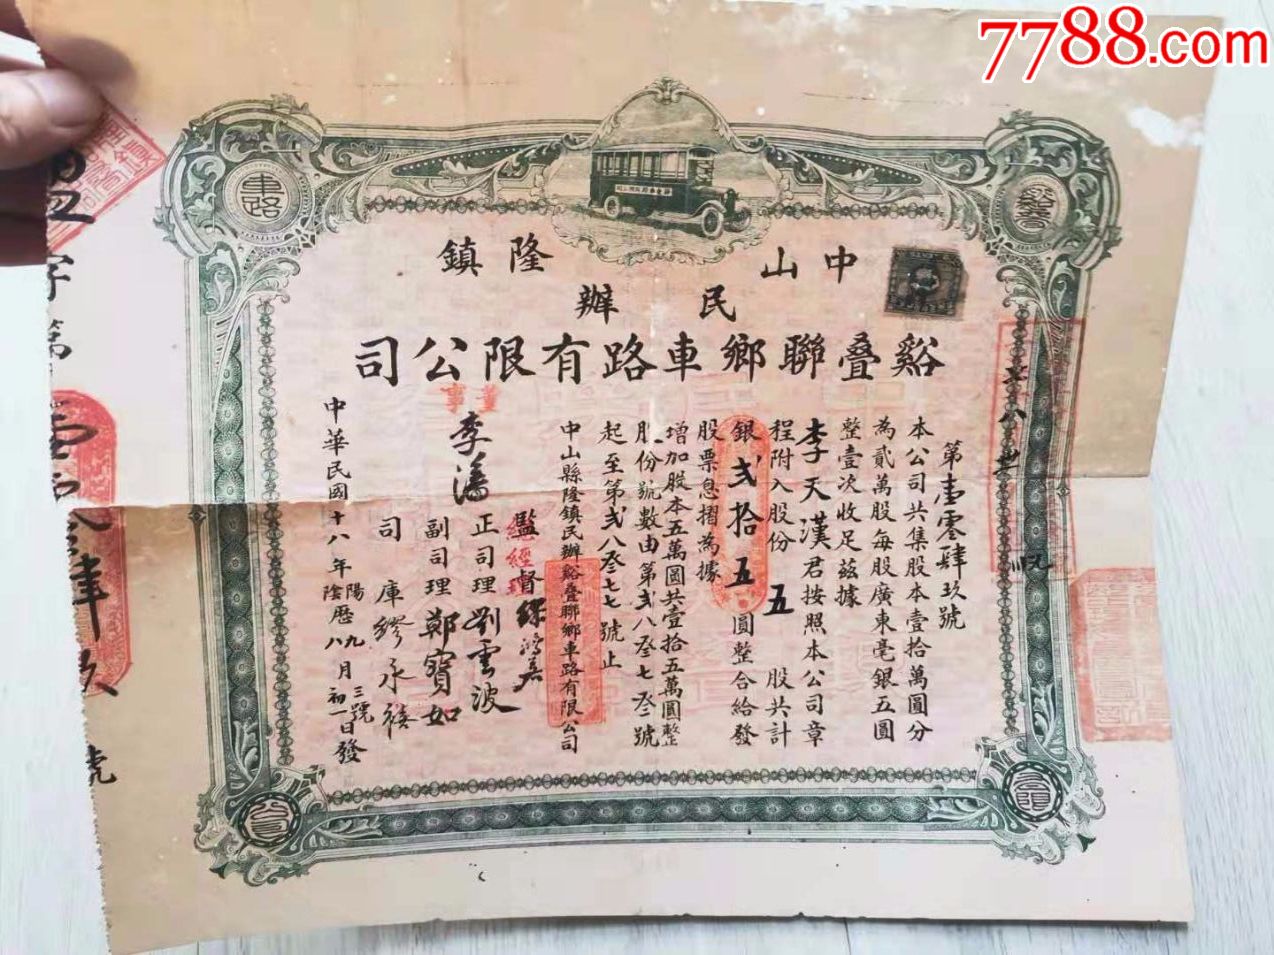 7788.com
中山隆鎮
民辦
谿疊聯鄉車路有限公司
車路
谿疊
有限
公司
第壹零肆玖號
本公司共集股本壹拾萬圓分
為貳萬股每股廣東毫銀五圓
整壹次收足茲據
李天漢君按照本公司章
程附入股份五股共計
銀弍拾五圓整合給發
股票息摺為據
增加股本五萬圓共壹拾五萬圓整
股份號數由第弍八叁七叁號
起至第弍八叁七七號止
中山縣隆鎮民辦谿疊聯鄉車路有限公司
監督繆鴻若
總經理
正司理劉雲波
副司理鄭寶如
司庫繆永禧
董事
李藩
中華民國十八年陽陰曆九八月三號初一日發
字第
號